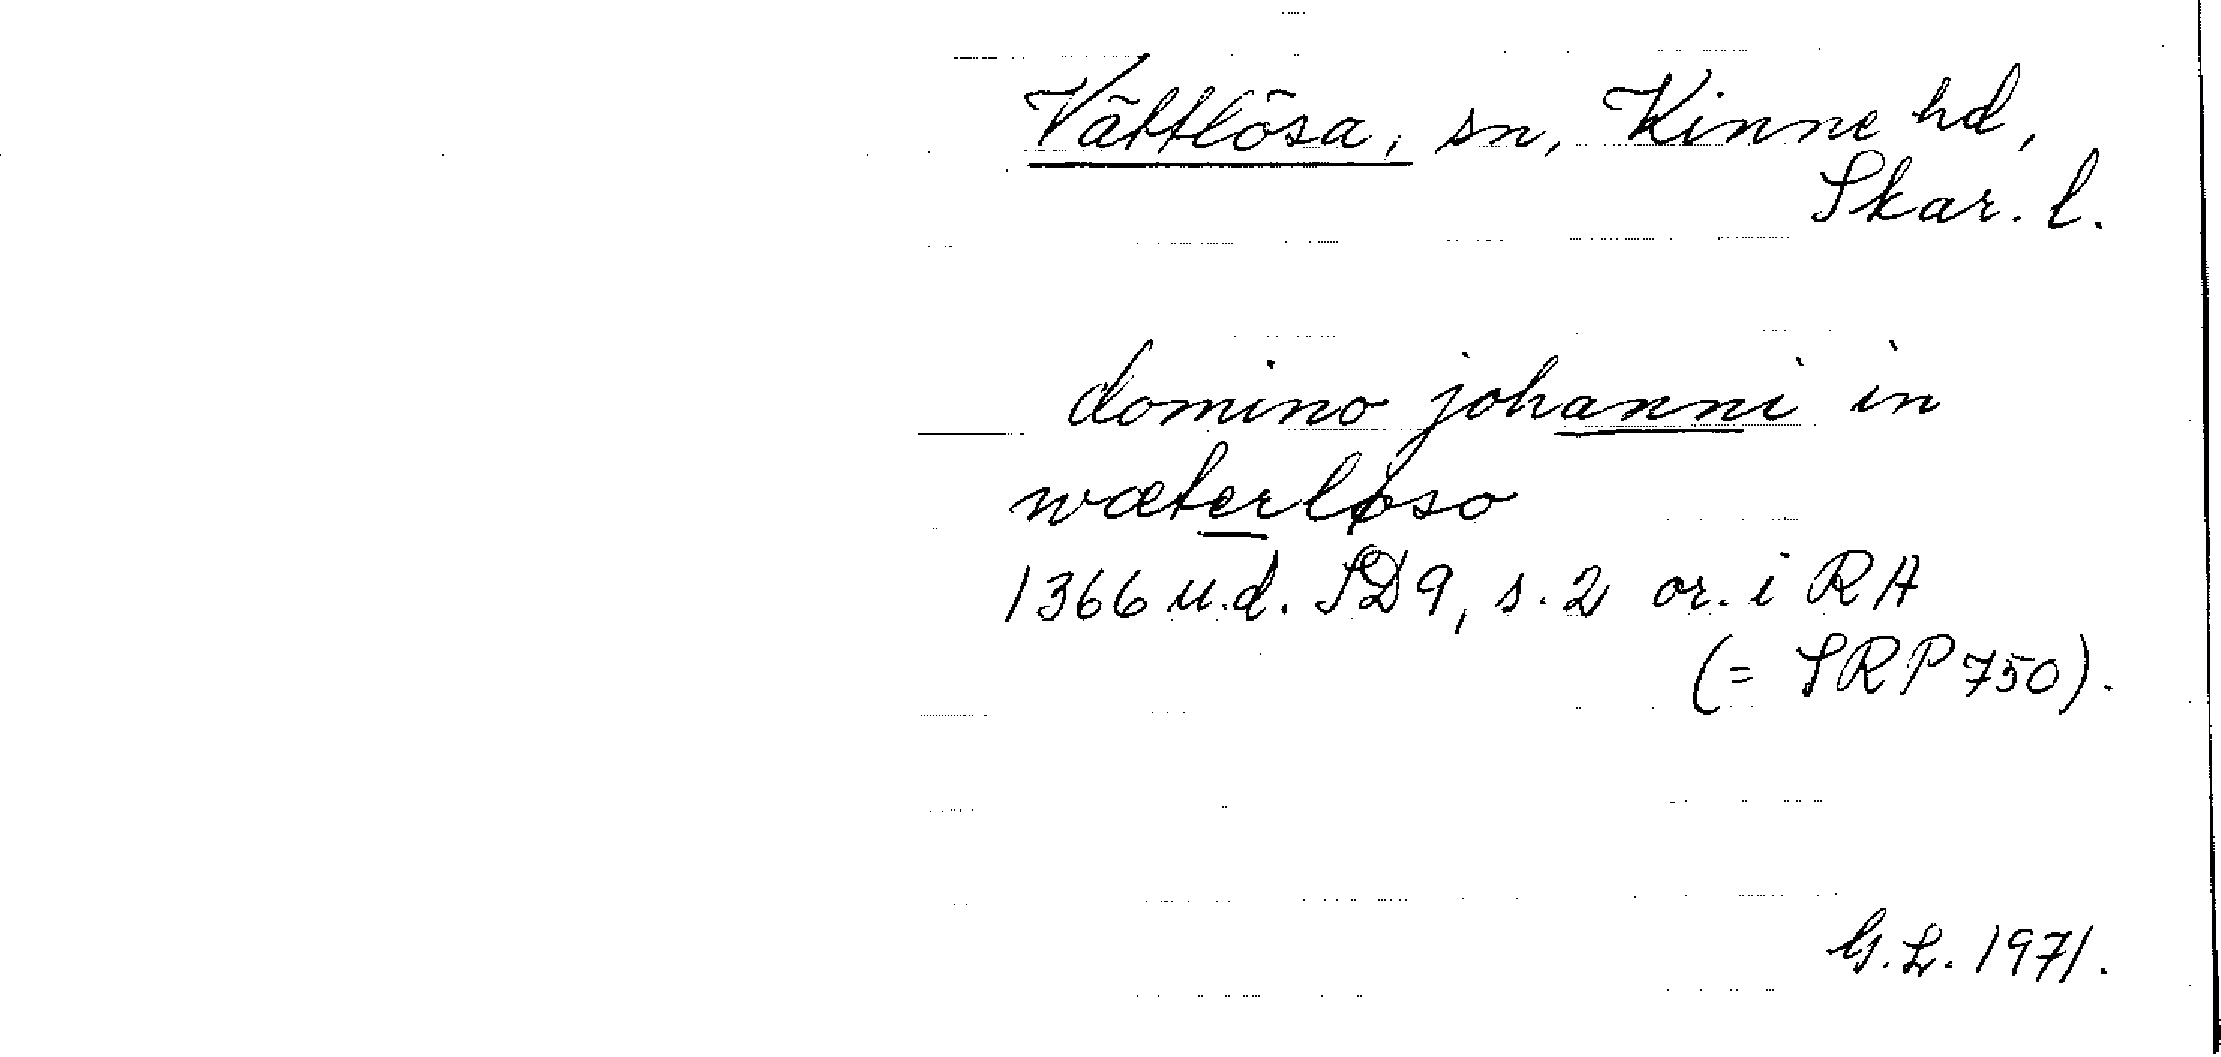 Vättlösa, sn, Kinne hd,
Skar. l.
domino johanni in
wæterløso
1366 u.d. SD9, s. 2 or. i RA
(= SRP 750).
G.L. 1971.